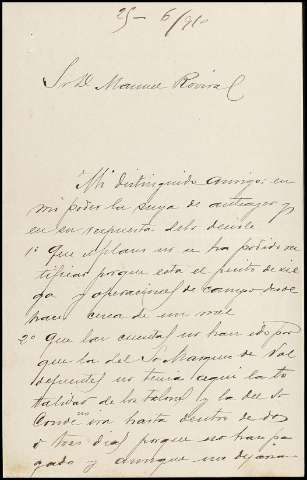 25 - 6/910
Sr D. Manuel Rovira
Mi distinguido amigo: en
mi poder la suya de anteayer y
en su respuesta debo decirle
1º que el plano no se ha podido
porque esta el perito de
y operaciones de campo desde
hace cerca de un mes
2º que las cuentas no han ido por
que la del Sr Marques de Val
defuentes no tenia aqui la to
talidad de los talones y la del Sr
Conde no ira hasta dentro de dos
o tres dias porque no han pa
gado y aunque no dejara